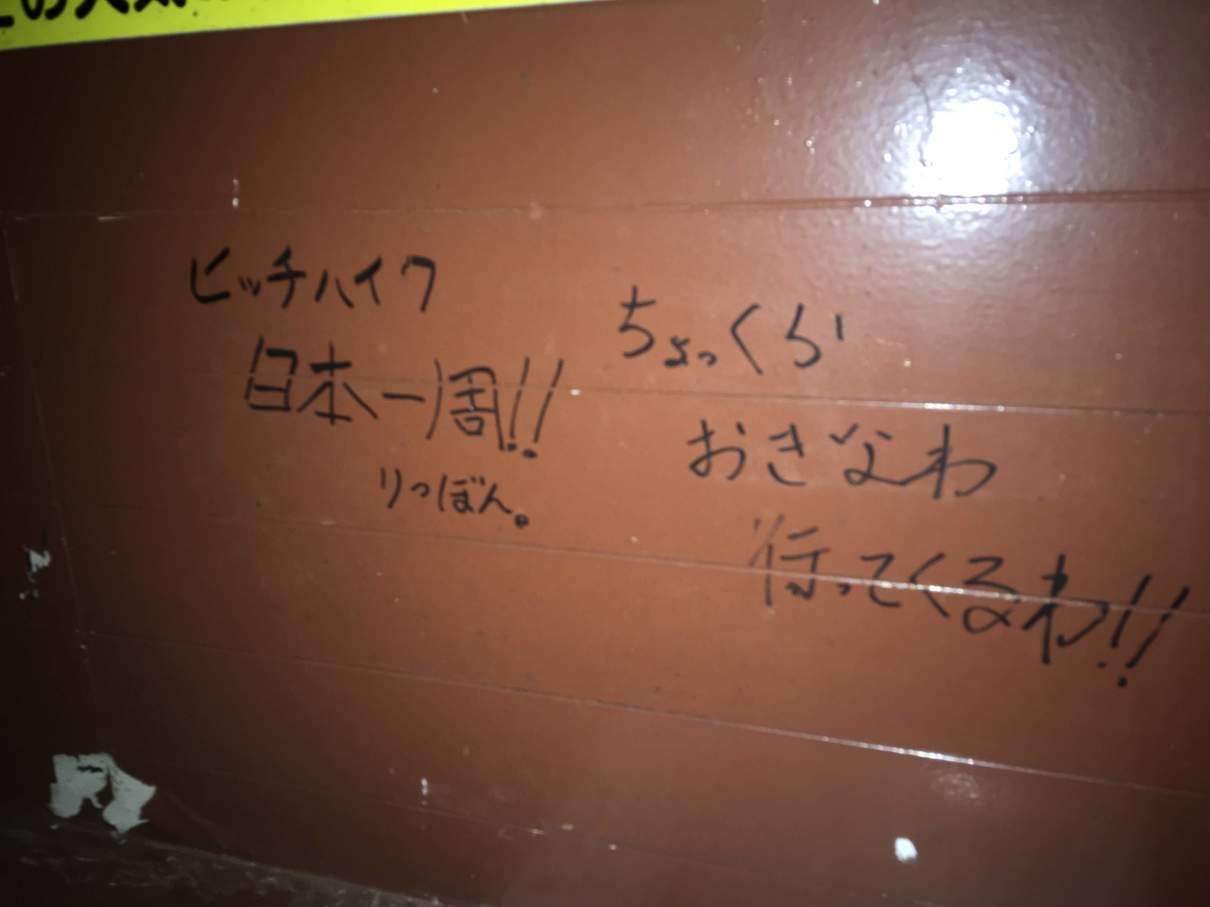 ヒッチハイク
日本一周!!
りっぽん。
ちょっくら
おきなわ
行ってくるわ!!